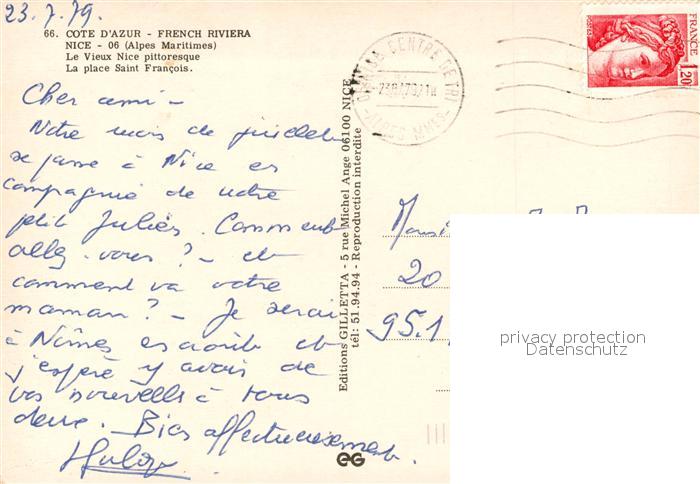 23.7.79.
66. COTE D'AZUR - FRENCH RIVIERA
NICE - 06 (Alpes Maritimes)
Le Vieux Nice pittoresque
La place Saint François.
Cher ami -
Notre mois de juillet
se passe à Nice en
compagnie de notre
petit Julien. Comment
allez-vous ? - et
comment va votre
maman ? - Je serai
à Nîmes en août et
j'espère y avoir de
vos nouvelles à tous
deux. Bien affectueusement.
Editions GILLETTA - 5 rue Michel Ange 06100 NICE
tél: 51.94.94 - Reproduction interdite
CENTRE DE TRI
FRANCE
1,20
POSTES
20
95.1
privacy protection
Datenschutz
EG